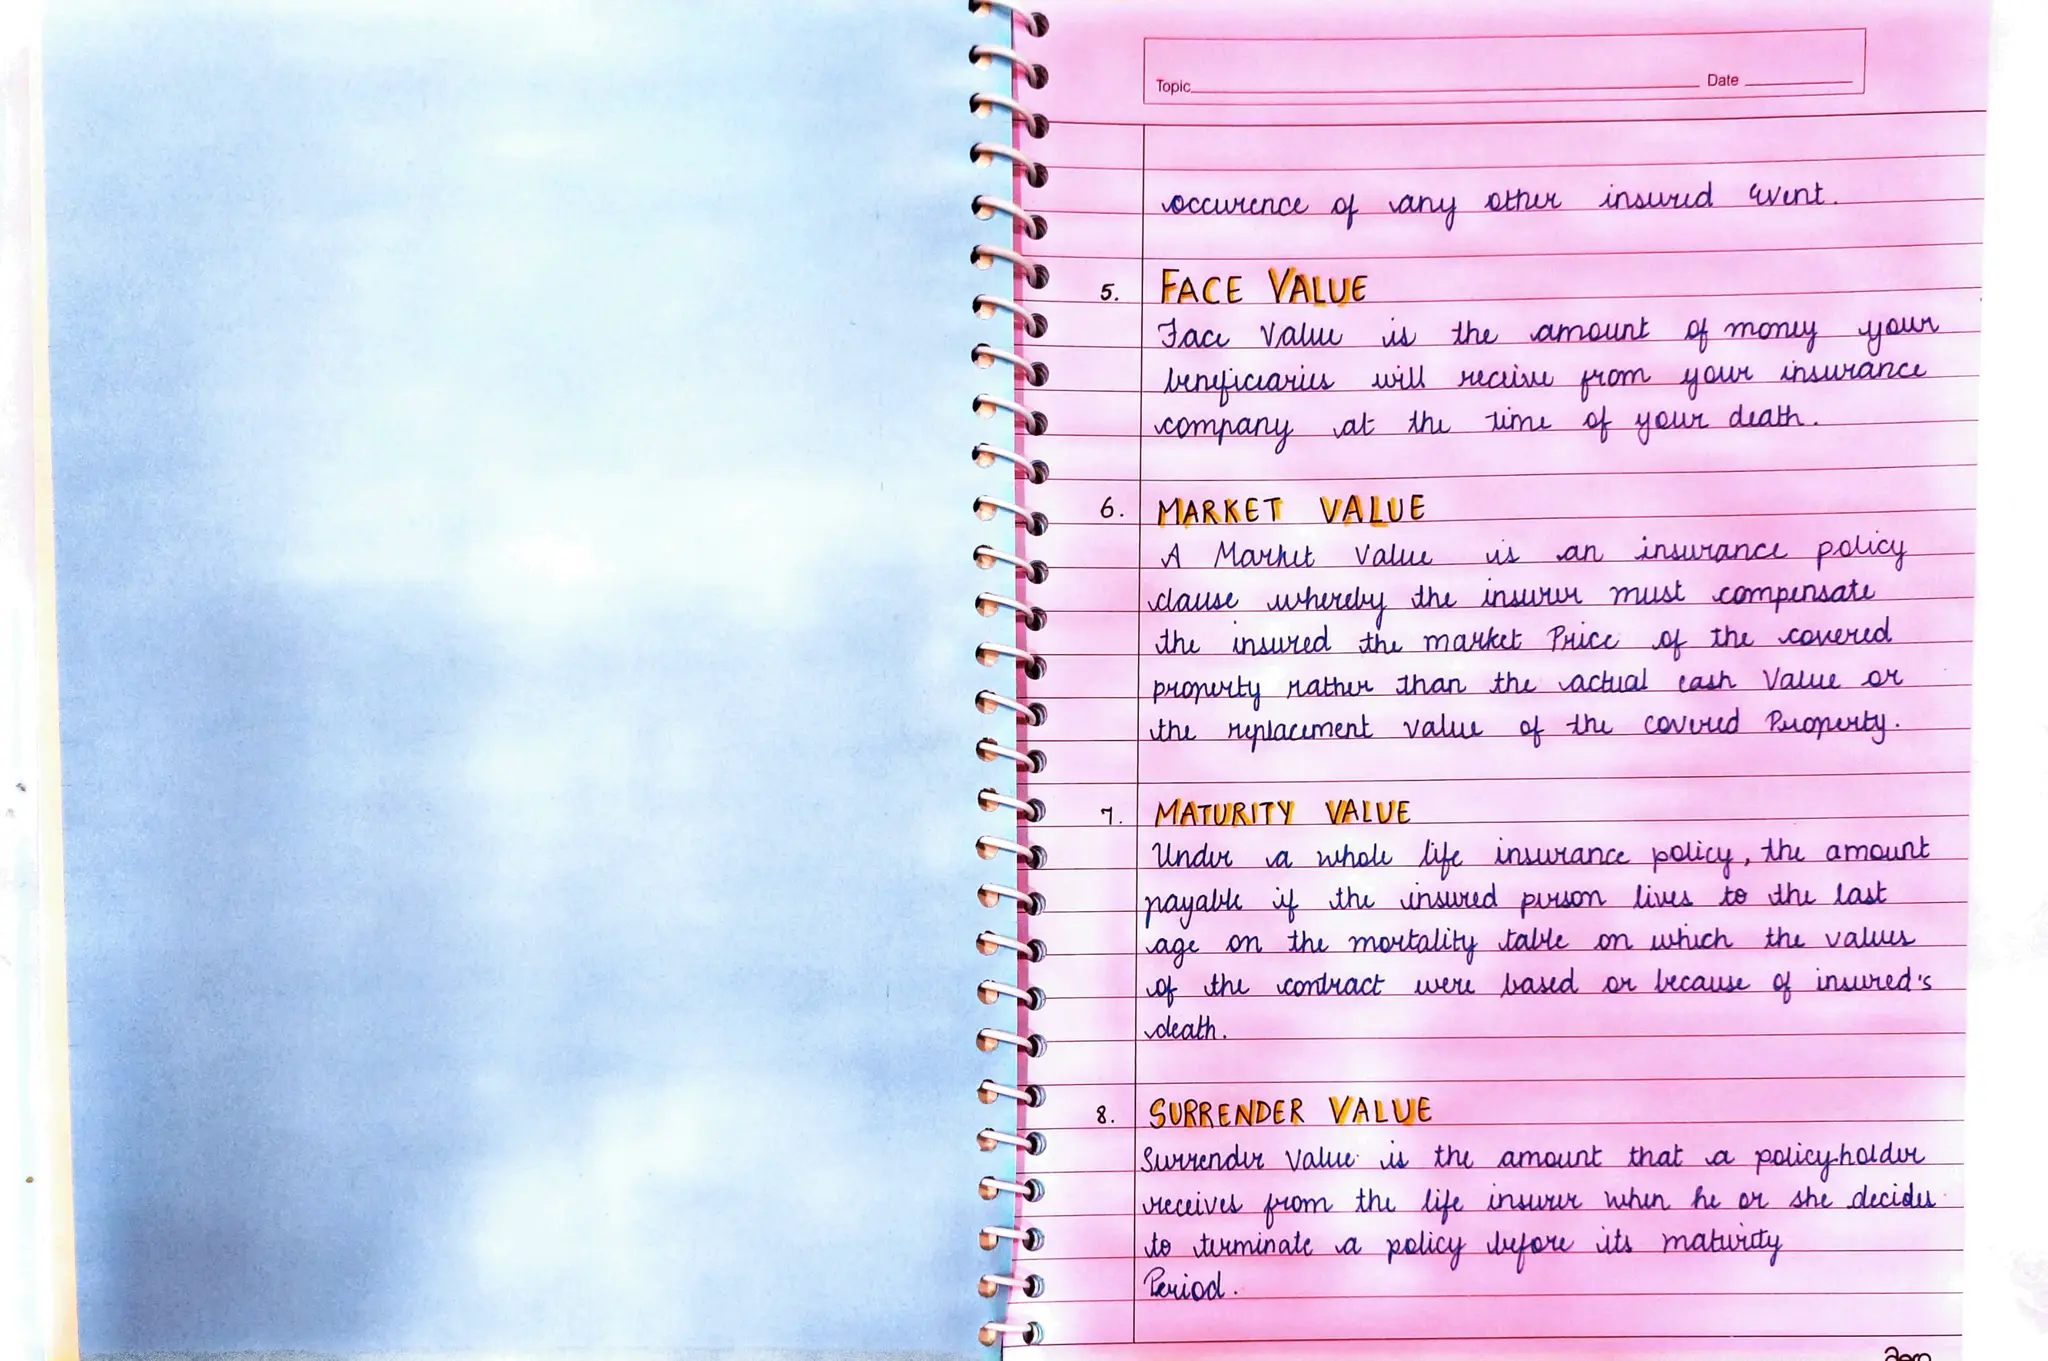 Topic Date
occurence of any other insured event.
5. FACE VALUE
Face Value is the amount of money your
beneficiaries will receive from your insurance
company at the time of your death.
6. MARKET VALUE
A Market Value is an insurance policy
clause whereby the insurer must compensate
the insured the market Price of the covered
property rather than the actual cash Value or
the replacement value of the covered Property.
7. MATURITY VALUE
Under a whole life insurance policy, the amount
payable if the insured person lives to the last
age on the mortality table on which the values
of the contract were based or because of insured's
death.
8. SURRENDER VALUE
Surrender Value is the amount that a policyholder
receives from the life insurer when he or she decides
to terminate a policy before its maturity
Period.